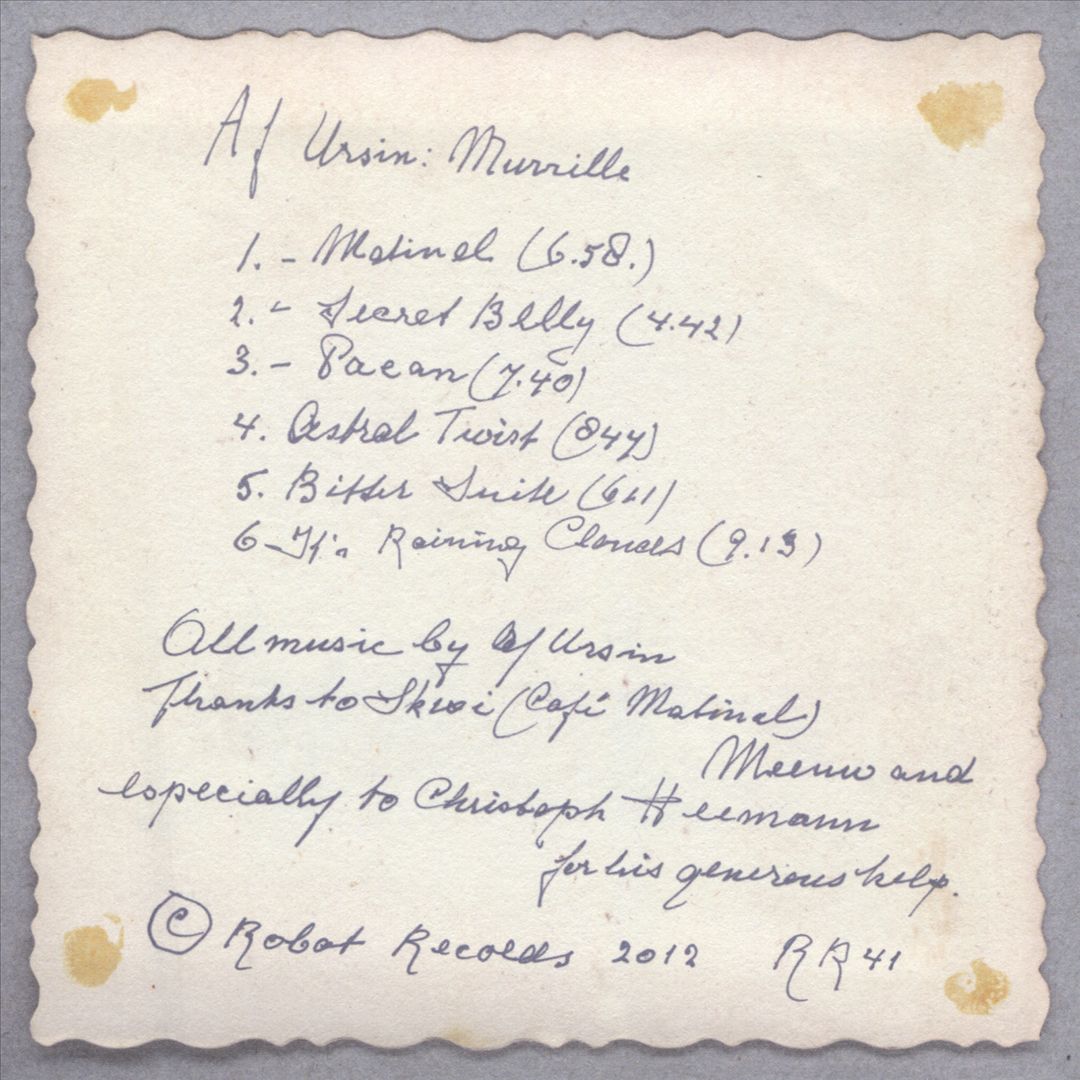 Af Ursin: Murrille
1. - Matinal (6.58.)
2. - Secret Belly (4.42)
3. - Paean (7.40)
4. Astral Twist (847)
5. Bitter Suite (611)
6 - It's Raining Clouds (9.13)
All music by Af Ursin
Thanks to (Café Matinal)
and
especially to Christoph Heemann
for his generous help.
© Robot Records 2012 RR 41